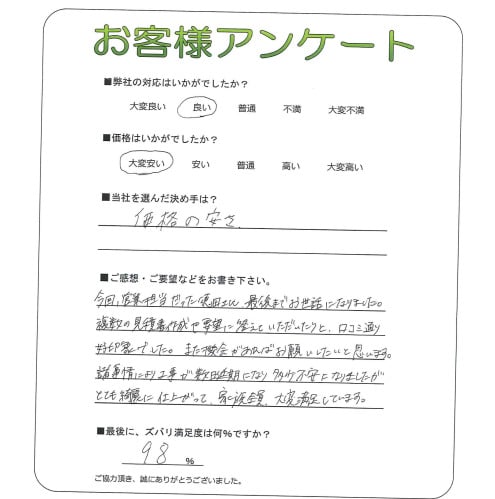 お客様アンケート
■弊社の対応はいかがでしたか？
大変良い 良い 普通 不満 大変不満
■価格はいかがでしたか？
大変安い 安い 普通 高い 大変高い
■当社を選んだ決め手は？
価格の安さ
■ご感想・ご要望などをお書き下さい。
今回、営業担当だった 最後までお世話になりました。
複数の見積書作成や要望に答えていただいたりと、口コミ通り
好印象でした。また機会があればお願いしたいと思います。
諸事情により工事が数回延期になり 多少不安になりましたが
とても綺麗に仕上がって、家族全員、大変満足しています。
■最後に、ズバリ満足度は何％ですか？
98 ％
ご協力頂き、誠にありがとうございました。